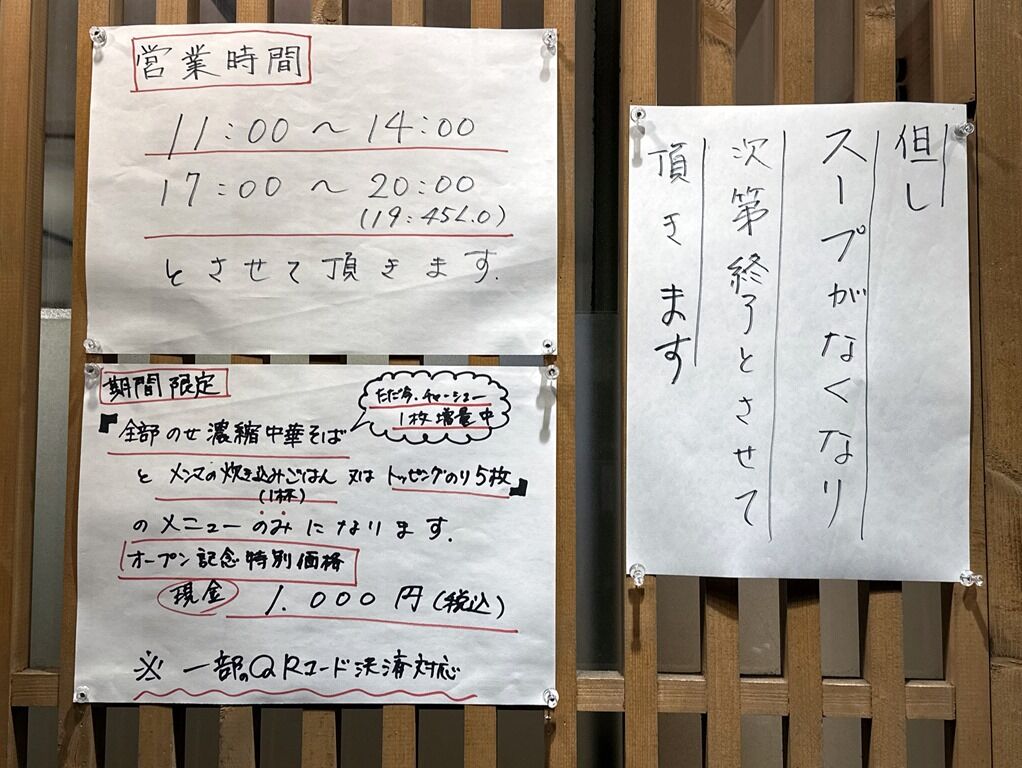 営業時間
11:00～14:00
17:00～20:00
(19:45L.O)
とさせて頂きます.
期間限定
ただ今、チャーシュー
1枚増量中
『全部のせ濃縮中華そば
と メンマの炊き込みごはん 又は トッピングのり5枚』
(1杯)
のメニューのみになります.
オープン記念特別価格
現金 1.000円(税込)
※一部のQRコード決済対応
但し
スープがなくなり
次第終了とさせて
頂きます